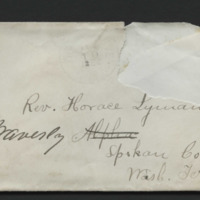 Rev. Horace Lyman
Waverly ~~Alpha~~
Spokan Co
Wash. Te